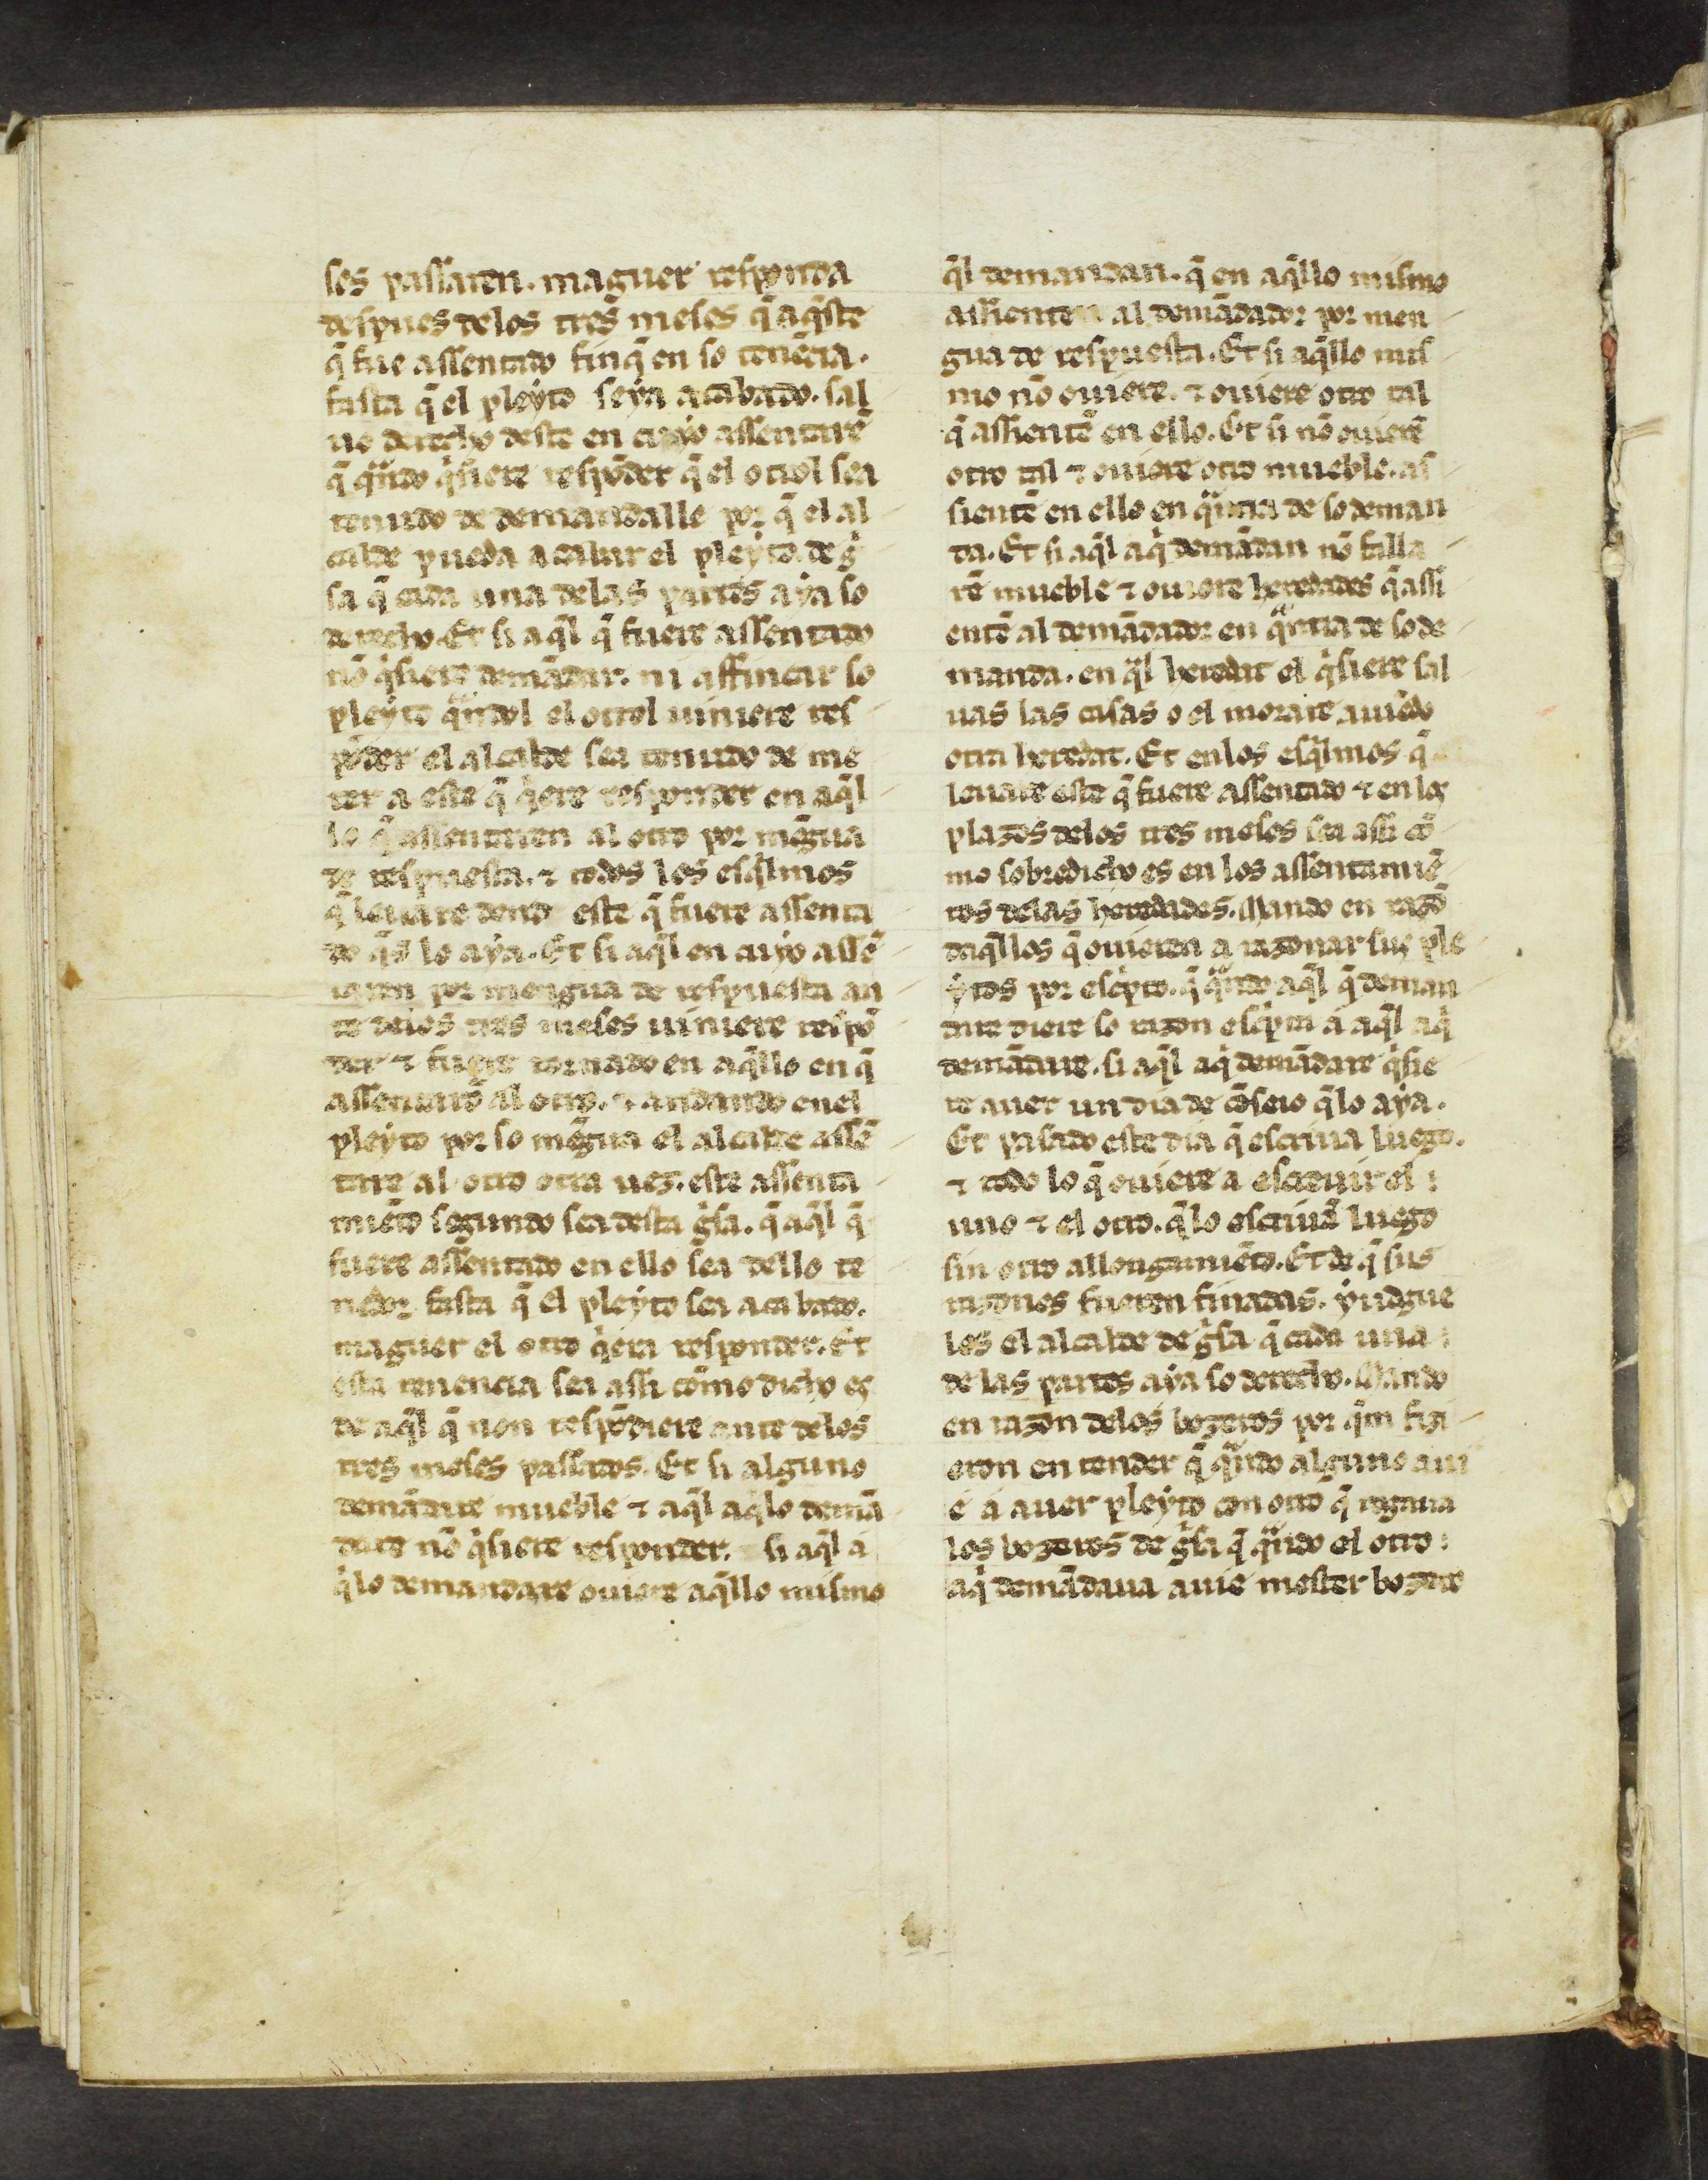 ses passaren. maguer responda
despues delos tres meses q̄ aq̄ste
q̄ fue assentado finq̄ en so tenēcia.
fasta q̄ el pleyto seya acabado. sal
uo derecho deste en cuyo assentarē
q̄ qͣndo qͥsiere respōder q̄ el otrol sea
tenudo de demandalle por q̄ el al
calde pueda acabar el pleyto. de gͥ
sa q̄ cada una delas partes aya so
derecho. Et si aq̄l q̄ fuere assentado
nō qͥsiere demādar. ni affincar so
pleyto qͣndol el otrol uiniere res
pōder el alcalde sea tenudo de me
ter a este q̄ qͥere responder en aq̄l
lo q̄ assentaren al otro por mēgua
de respuesta. ⁊ todos los esqͥlmos
q̄ leuare dend este q̄ fuere assenta
do q̄s lo aya. Et si aq̄l en cuyo assē
taren por mengua de respuesta an
te delos tres meses uiniere respō
der ⁊ fuere tornado en aq̄llo en q̄
assentarō al otro. ⁊ andando enel
pleyto por so mēgua el alcalde assē
tare al otro otra uez. este assenta
miēto segundo sea desta gͥsa. q̄ aq̄l q̄
fuere assentado en ello sea dello te
nedor fasta q̄ el pleyto sea acabado.
maguer el otro qͥera responder. Et
esta tenencia sea assi cōmo dicho es
de aq̄l q̄ non respōdiere ante delos
tres meses passados. Et si alguno
demādare mueble ⁊ aq̄l aq̄ lo demā
dare nō qͥsiere responder. si aq̄l a
qͥ lo demandare ouiere aq̄llo mismo
q̄l demandan. q̄ en aq̄llo mismo
assienten al demādador por men
gua de respuesta. Et si aq̄llo mis
mo nō ouiere. ⁊ ouiere otro tal
q̄ assientē en ello. Et si nō ouierē
otro tal ⁊ ouiere otro mueble. as
sientē en ello en qͣntia de so deman
da. Et si aq̄l aqͥ demādan nō falla
rē mueble ⁊ ouiere heredades q̄ assi
entē al demādador en qͣntia de so de
manda. en q̄l heredat el qͥsiere sal
uas las casas o el morare auiēdo
otra heredat. Et enlos esqͥlmos q̄
leuare este q̄ fuere assentado ⁊ en los
plazos delos tres meses sea assi cō
mo sobredicho es en los assentamiē
tos delas heredades. Mando en razō
daq̄llos q̄ ouieren a razonar sus ple
ytos por escͥpto. q̄ qͣndo aq̄l q̄ deman
dare diere so razon escͥpta a aq̄l aqͥ
demādare. si aq̄l aqͥ demādare qͥsie
re auer un dia de cōseio q̄ lo aya.
Et pasado este dia q̄ escriua luego.
⁊ todo lo q̄ ouiere a escreuir el
uno ⁊ el otro. q̄ lo escriuā luego
sin otro allongamiēto. Et de q̄ sus
razones fueren finadas. yudgue
les el alcalde de gͥsa q̄ cada una
de las partes aya so derecho. Mando
en razon delos bozeros por q̄m fizi
eron entender q̄ qͣndo alguno aui
e a auer pleyto con otro q̄ rogaua
los bozeros de gͥsa q̄ qͣndo el otro
aqͥ demādaua auie mester bozero